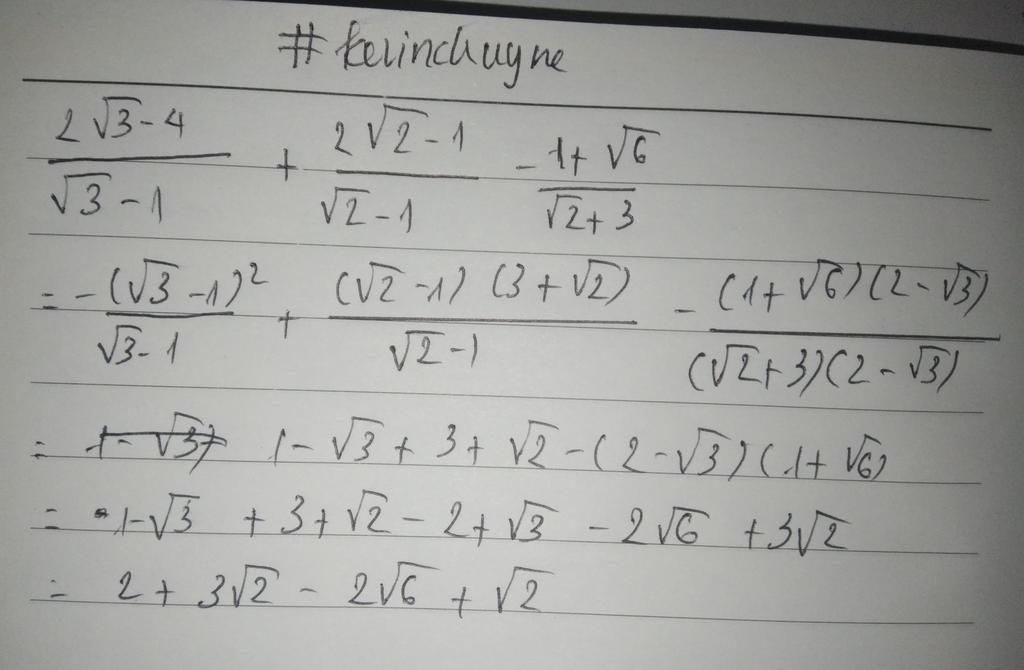 #kevinchuyne
(2√3-4)/(√3-1) + (2√2-1)/(√2-1) - (1+√6)/(√2+3)
= -(√3-1)²/(√3-1) + (√2-1)(3+√2)/(√2-1) - (1+√6)(2-√3)/((√2+3)(2-√3))
= 1-√3) 1-√3+3+√2-(2-√3)(1+√6)
= 1-√3+3+√2-2+√3-2√6+3√2
= 2+3√2-2√6+√2